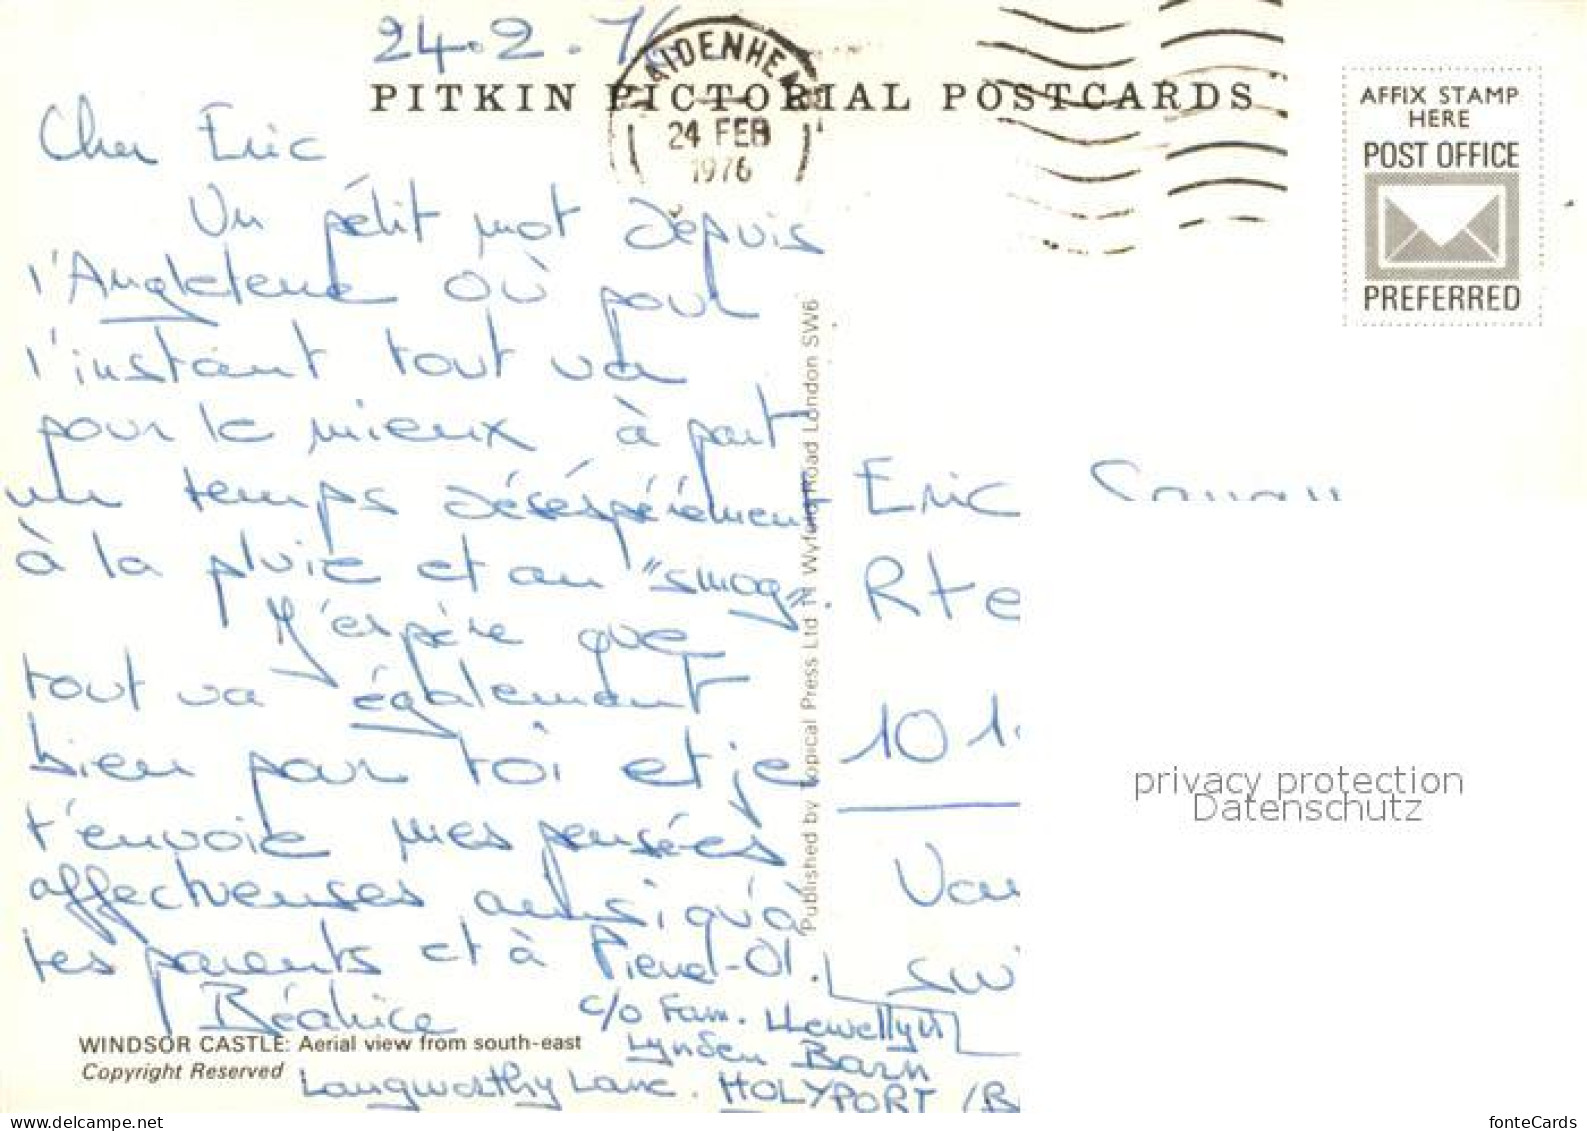 24.2.76
PITKIN PICTORIAL POSTCARDS
MAIDENHEAD
24 FEB
1976
AFFIX STAMP
HERE
POST OFFICE
PREFERRED
Cher Eric
Un pétit mot depuis
l'Angleterre où pour
l'instant tout va
pour le mieux à part
un temps déséspérément
à la pluie et au "smog".
J'espère que
tout va également
bien pour toi et je
t'envoie mes pensées
affectueuses ainsi qu'à
tes parents et à Pierre-Ol.
Béatrice
c/o Fam. Llewellyn
Lynden Barn
Langworthy Lane. HOLYPORT /B
WINDSOR CASTLE: Aerial view from south-east
Copyright Reserved
Published by Topical Press Ltd 11 Wyfold Road London SW6
Eric
Rte
10 1
Vau
SWI
privacy protection
Datenschutz
www.delcampe.net
fonteCards